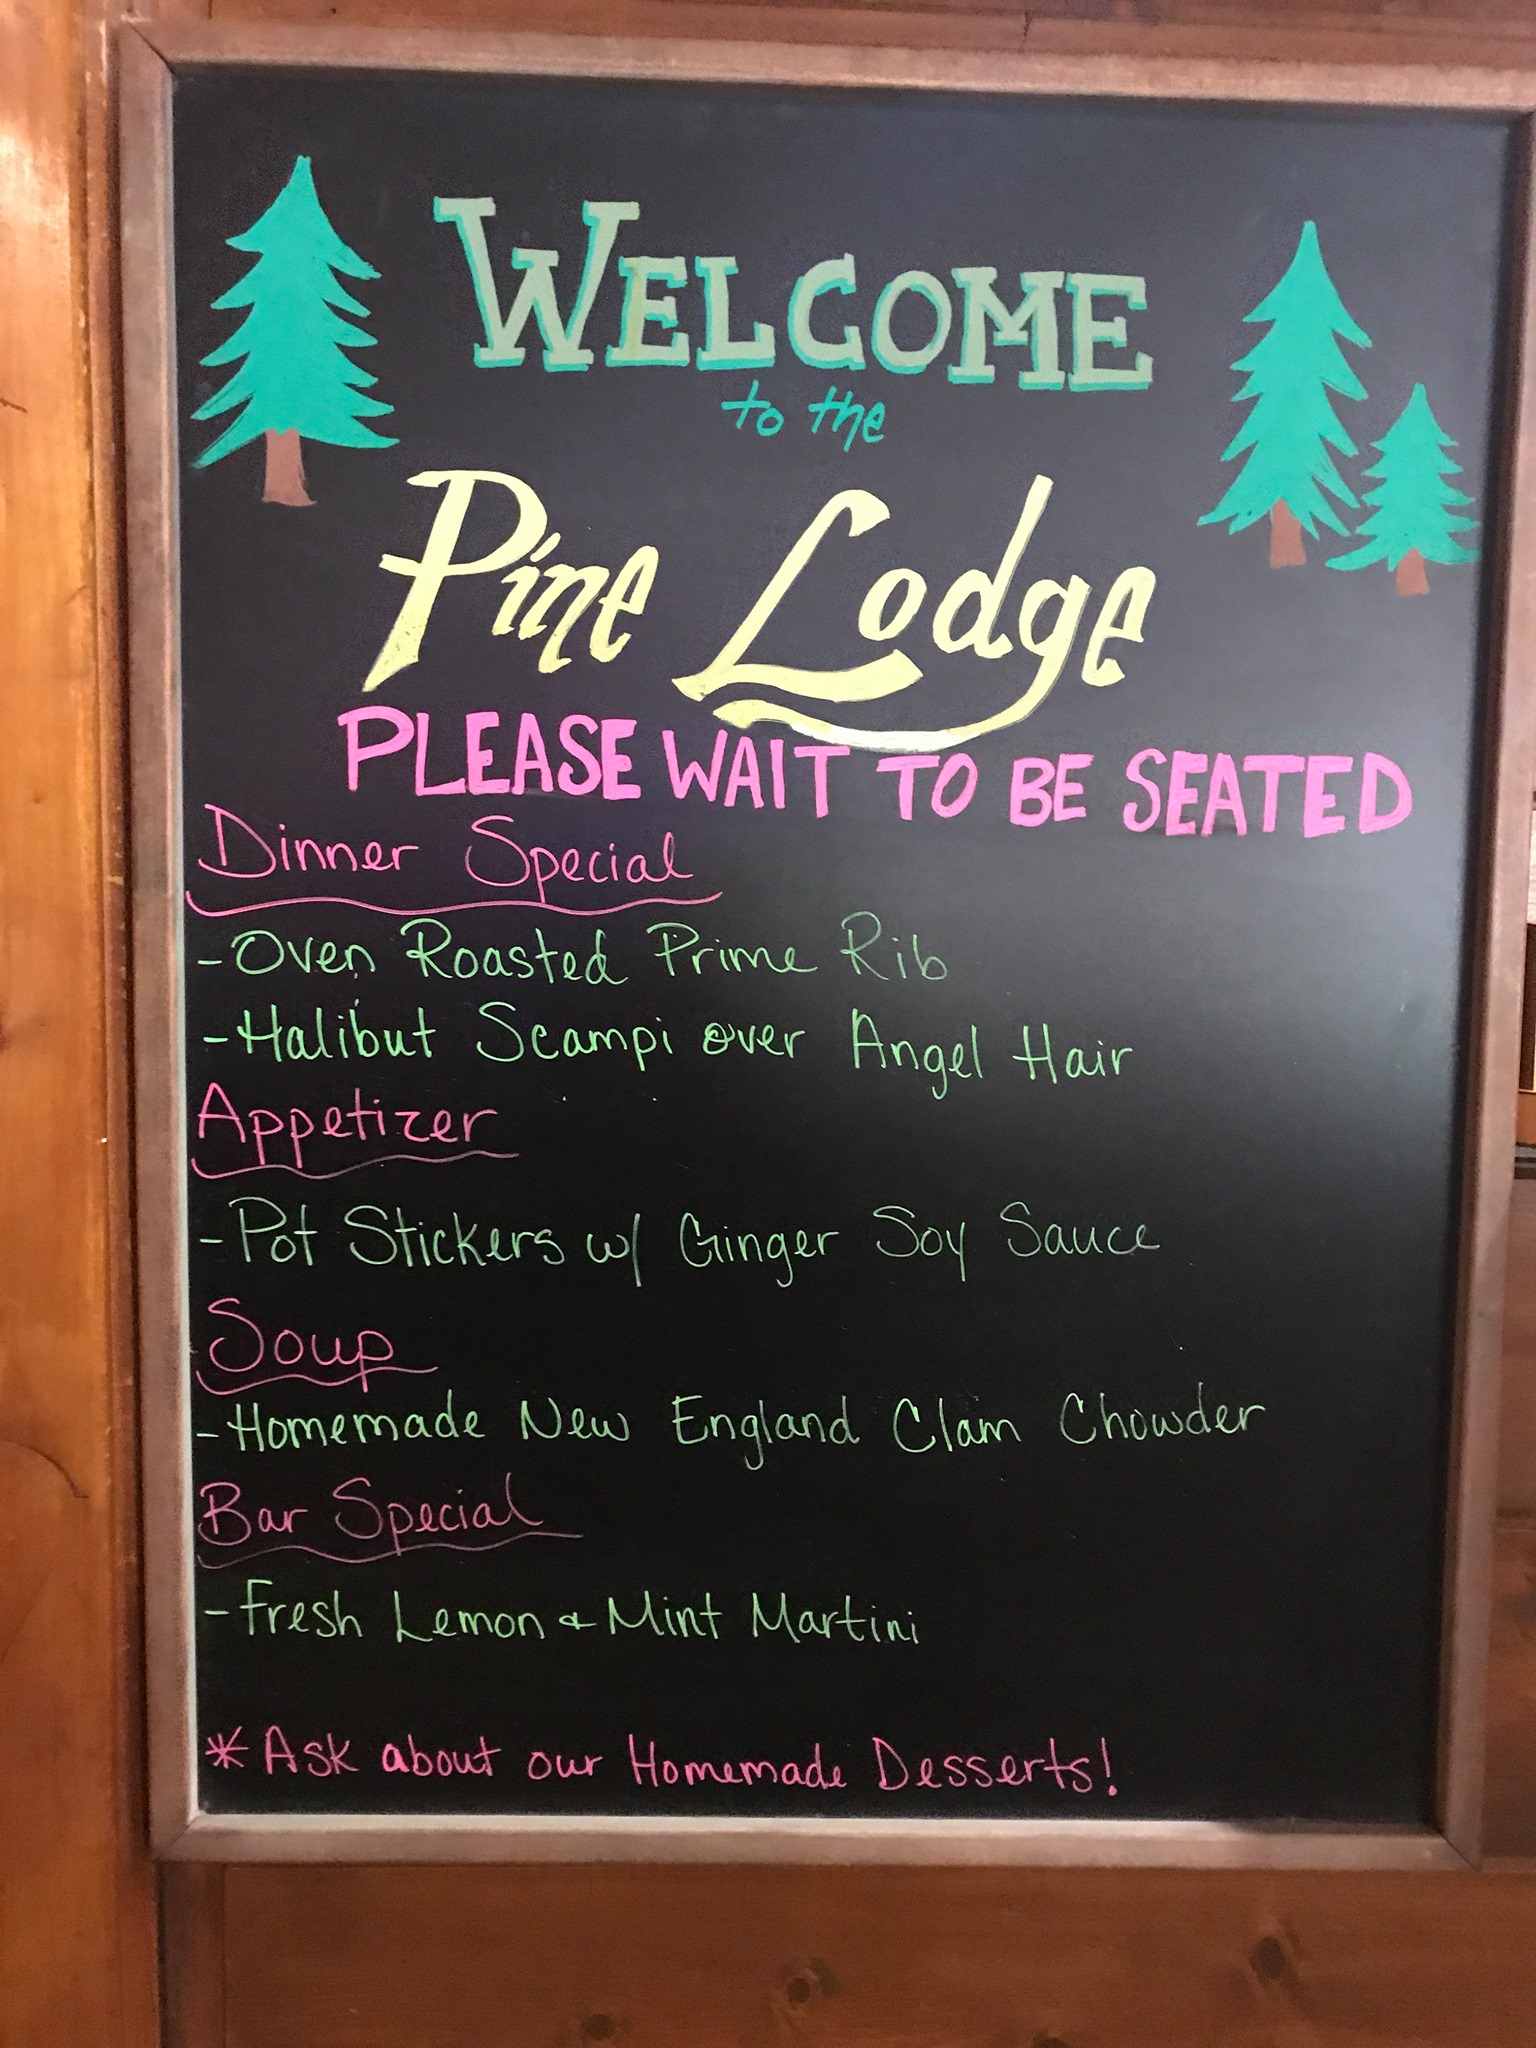 WELCOME
to the
Pine Lodge
PLEASE WAIT TO BE SEATED
Dinner Special
- Oven Roasted Prime Rib
- Halibut Scampi over Angel Hair
Appetizer
- Pot Stickers w/ Ginger Soy Sauce
Soup
- Homemade New England Clam Chowder
Bar Special
- Fresh Lemon & Mint Martini
* Ask about our Homemade Desserts!